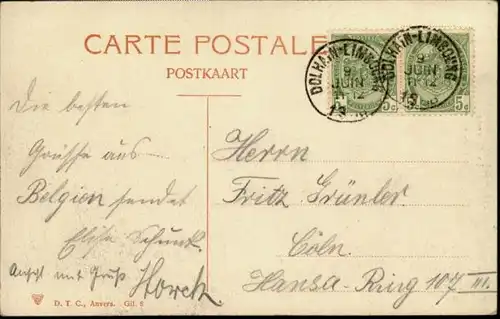 CARTE POSTALE
POSTKAART
DOLHAIN-LIMBOURG
9
JUIN
11-12
DOLHAIN-LIMBOURG
9
JUIN
11-12
5c
5c
Die besten
Grüsse aus
Belgien sendet
Elise Schunck.
mit Gruß
Herrn
Fritz Grünler
Cöln.
Hansa-Ring 107 III.
D. T. C., Anvers. Gil. 6